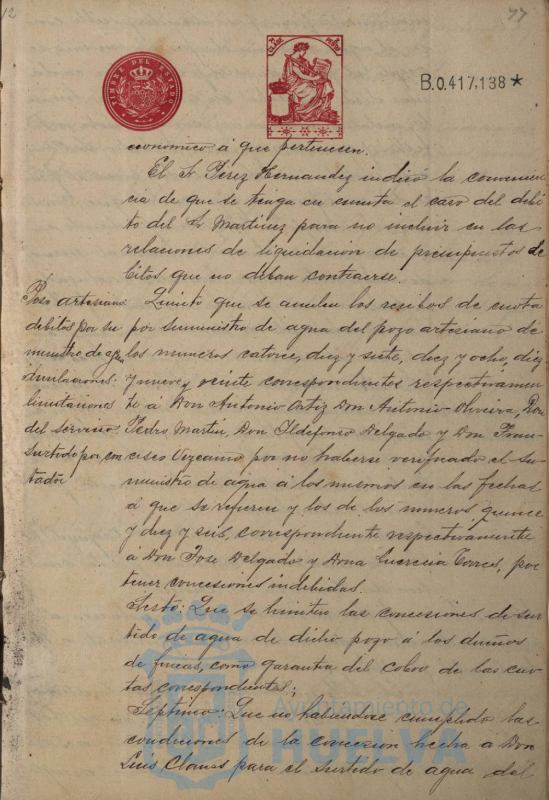 12
77
TIMBRE DEL ESTADO
B.0.417,138*
economico á que pertenecen.
El Sr Perez Hernandez indicó la convenien
cia de que se tenga en cuenta el caso del debi
to del Sr Martinez para no incluir en las
relaciones de liquidacion de presupuestos de
bitos que no deban contraerse.
Pozo artesiano
debitos por su
ministro de agua
anulaciones:
limitaciones
del servicio
Surtido por con
tador
Quinto que se anulen los recibos de cuota
por suministro de agua del pozo artesiano de
los numeros catorce, diez y siete, diez y ocho, diez
y nueve y veinte correspondientes respectivamen
te á Don Antonio Ortiz Don Antonio Oliveira, Don
Pedro Martin, Don Ildefonso Delgado y Don Fran
cisco Vizcaino por no haberse verificado el su
ministro de agua á los mismos en las fechas
á que se refieren y los de los numeros quince
y diez y seis, correspondiente respectivamente
a Don Jose Delgado y Dona Lucrecia Torres, por
tener concesiones indebidas.
Sesto: Que se limiten las concesiones de sur
tido de agua de dicho pozo á los dueños
de fincas, como garantia del cobro de las cuo
tas correspondientes;
Septimo: Que no habiendose cumplido las
condiciones de la concesion hecha á Don
Luis Clauss para el surtido de agua del
Ayuntamiento de
HUELVA